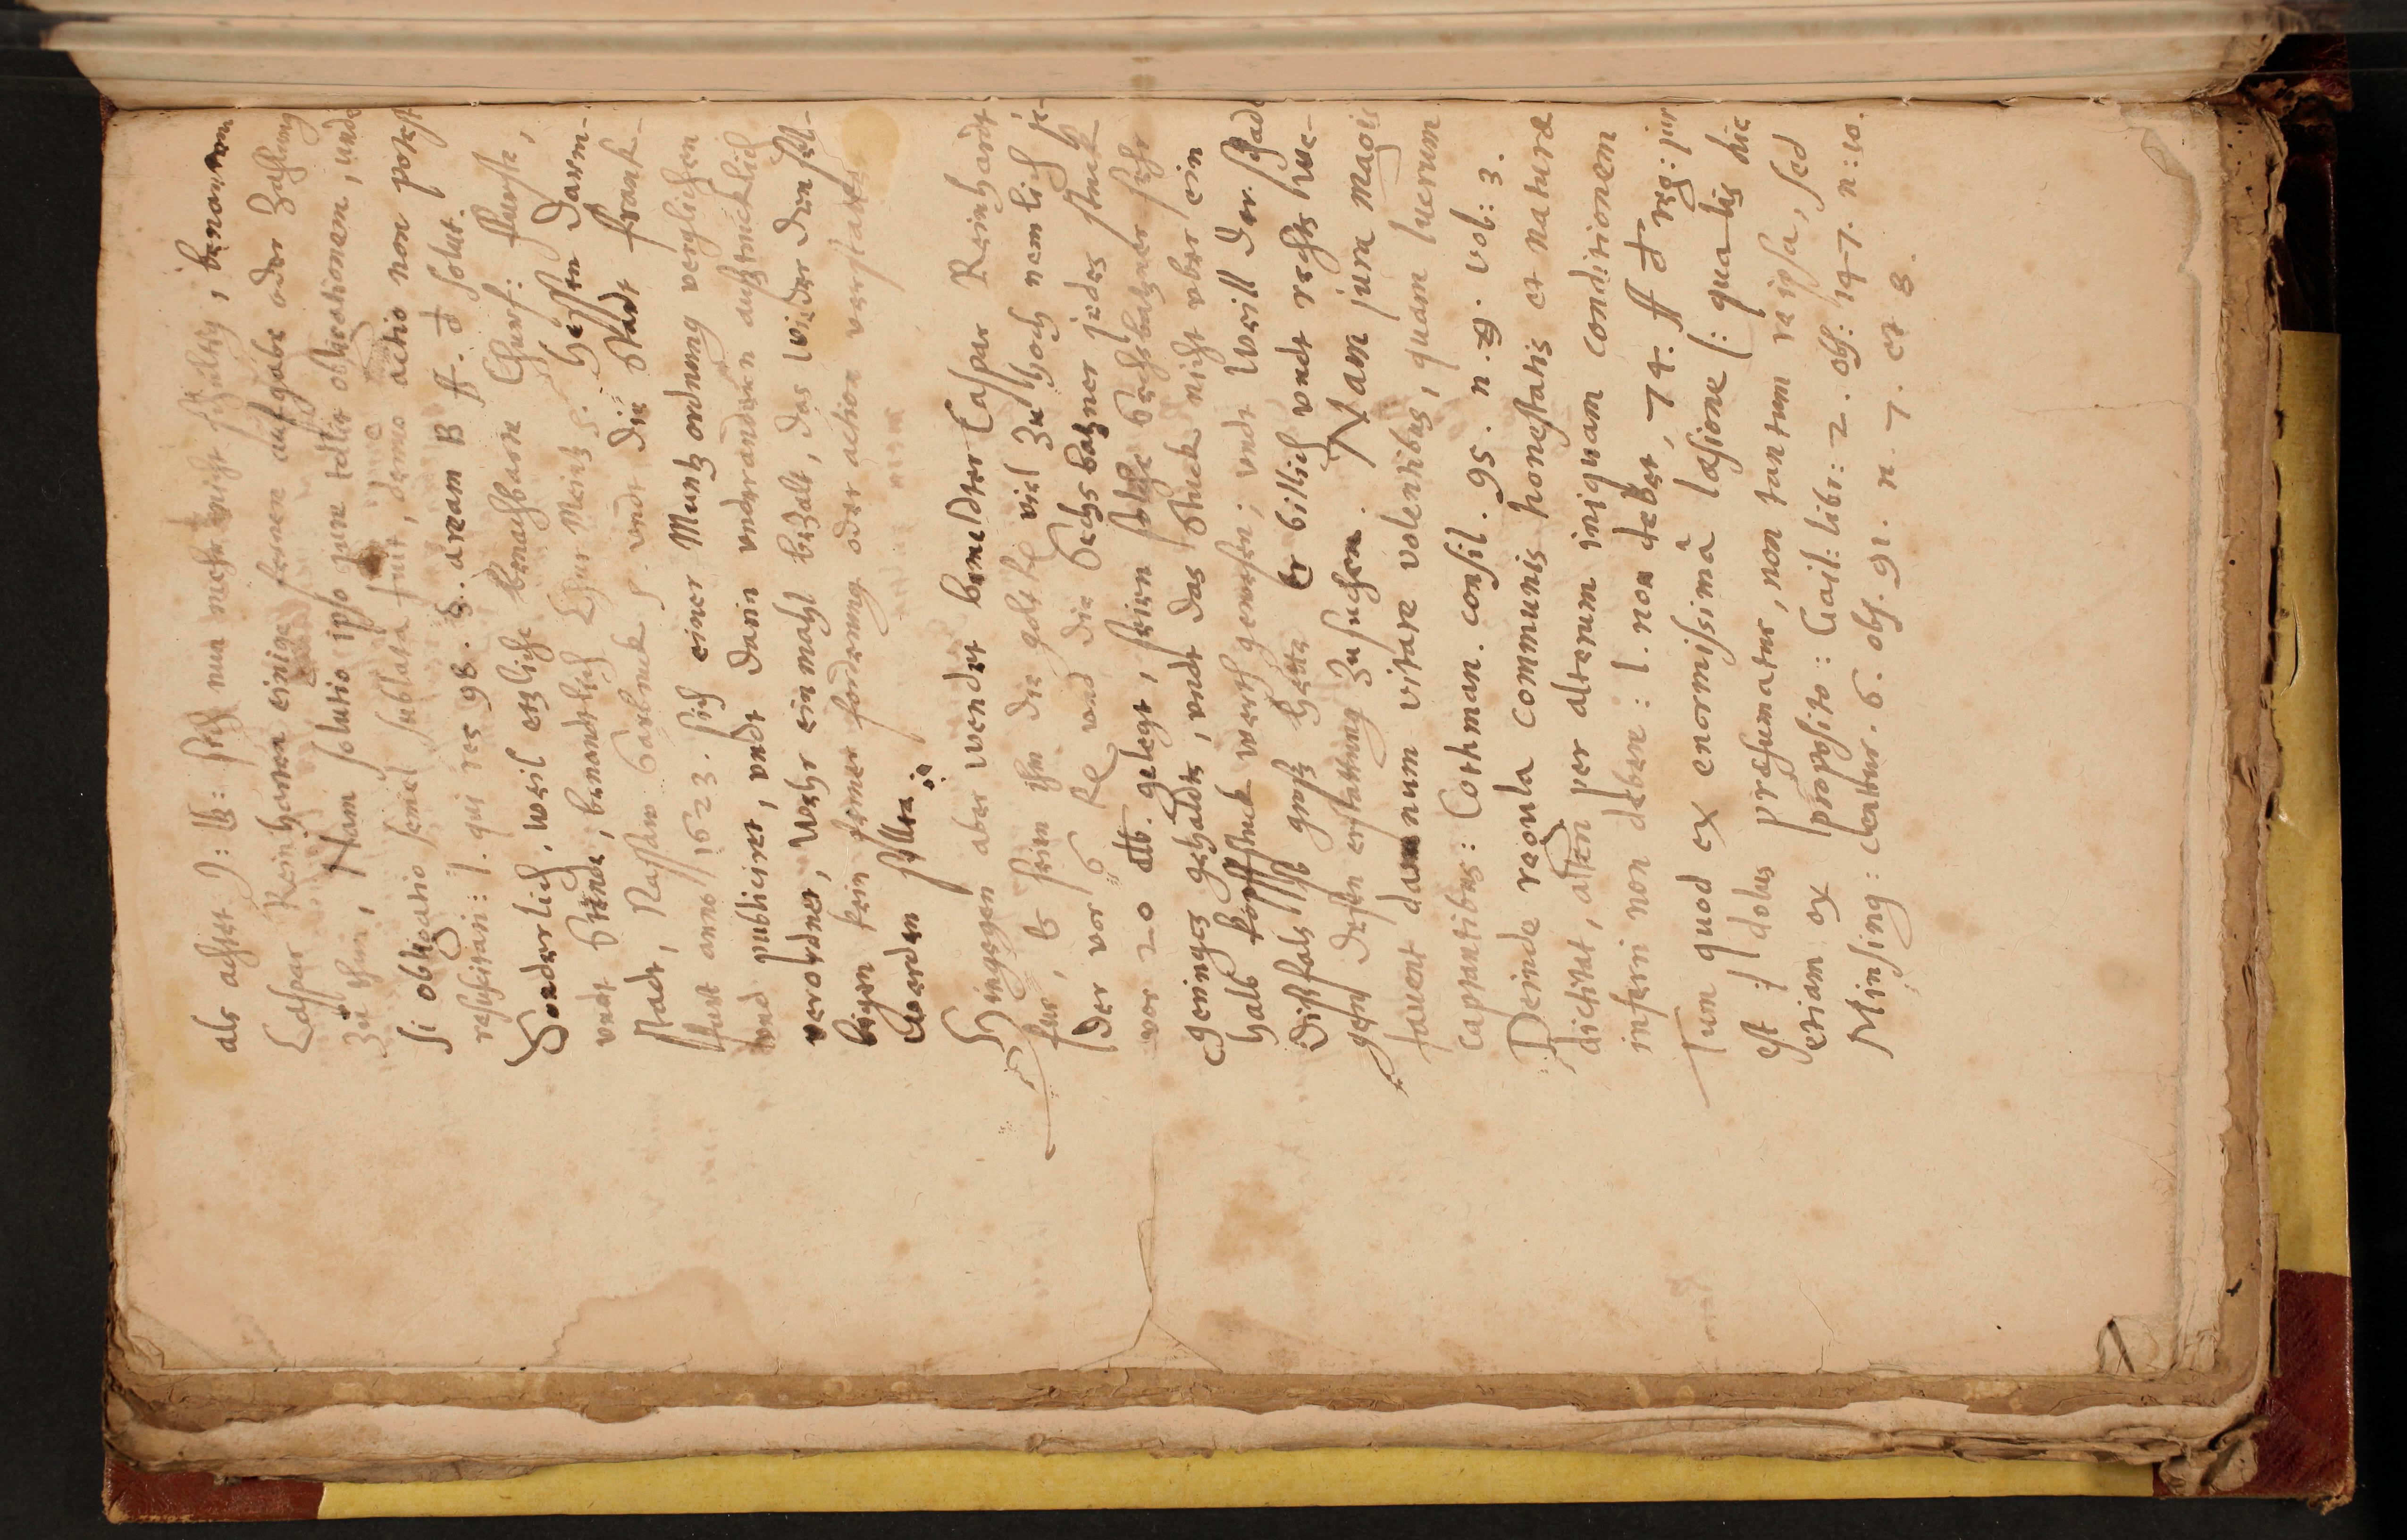 als achtet J: W: sich nun mehr nicht schuldig, benantem
Caspar Reinharten einige ferner aufgabe oder Zahlung
zu thun, Nam solutio ipso jure tollit obligationem, unde
si obligatio semel sublata fuit, denuo actio non potest
resuscitari: l. qui res 98. §. aream B ff. d solut.
Sonderlich, weil etzliche benachbarte Churf: Furste,
vndt Stende, benandtlich Chur Meintz p. Hessen Darm-
stadt, Nassaw Sarbruck p. vndt die Stadt Franck-
furt anno 1623. sich einer Muntz ordnung verglichen
vnd publiciret, vndt darin vnder andern außtrucklich
verordnet, Wehr ein mahl bezalt, das wieder den sel-
bigen kein ferner forderung oder action verstattet
werden solle.
Hingegen aber wendet bemeldter Caspar Reinhardt
fur, Es seien ihm die golt fl viel zu hoch nemlich je-
der vor 6 fl vnd die Sechsbatzner jedes stuck
vor 20 alb. gelegt, seien solche Sechsbatzner sehr
geringes gehaldts, vndt das stuck nicht vber ein
halb kopffstuck werth gewesen; vndt weill der schad
dißfals so groß hette Er billich vndt rechts we-
gen dessen erstattung zu suchen. Nam jura magis
favent damnum vitare volentibus, quam lucrum
captantibus: Cothman. consil. 95. n. 9. vol: 3.
Deinde regula communis honestatis et naturæ
dictitat, alteri per alterum iniquam conditionem
inferri non debere: l. non debet, 74. ff d reg: jur
Tum quod ex enormissimâ læsione (: qualis hic
est :) dolus præsumatur, non tantum re ipsa, sed
etiam ex proposito: Gail: libr: 2. obs: 147. n: 10.
Minsing: centur. 6. obs. 91. n. 7. et 8.